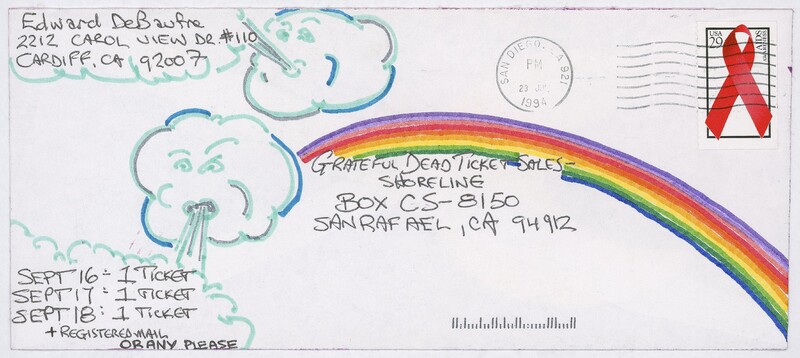 Edward DeBaufre
2212 CAROL VIEW DR. #110
CARDIFF, CA 92007
SAN DIEGO, CA 921
PM
1994
USA
29
AIDS
GRATEFUL DEAD TICKET SALES-
SHORELINE
BOX CS-8150
SAN RAFAEL, CA 94912
SEPT 16: 1 TICKET
SEPT 17: 1 TICKET
SEPT 18: 1 TICKET
+ REGISTERED MAIL
OR ANY PLEASE